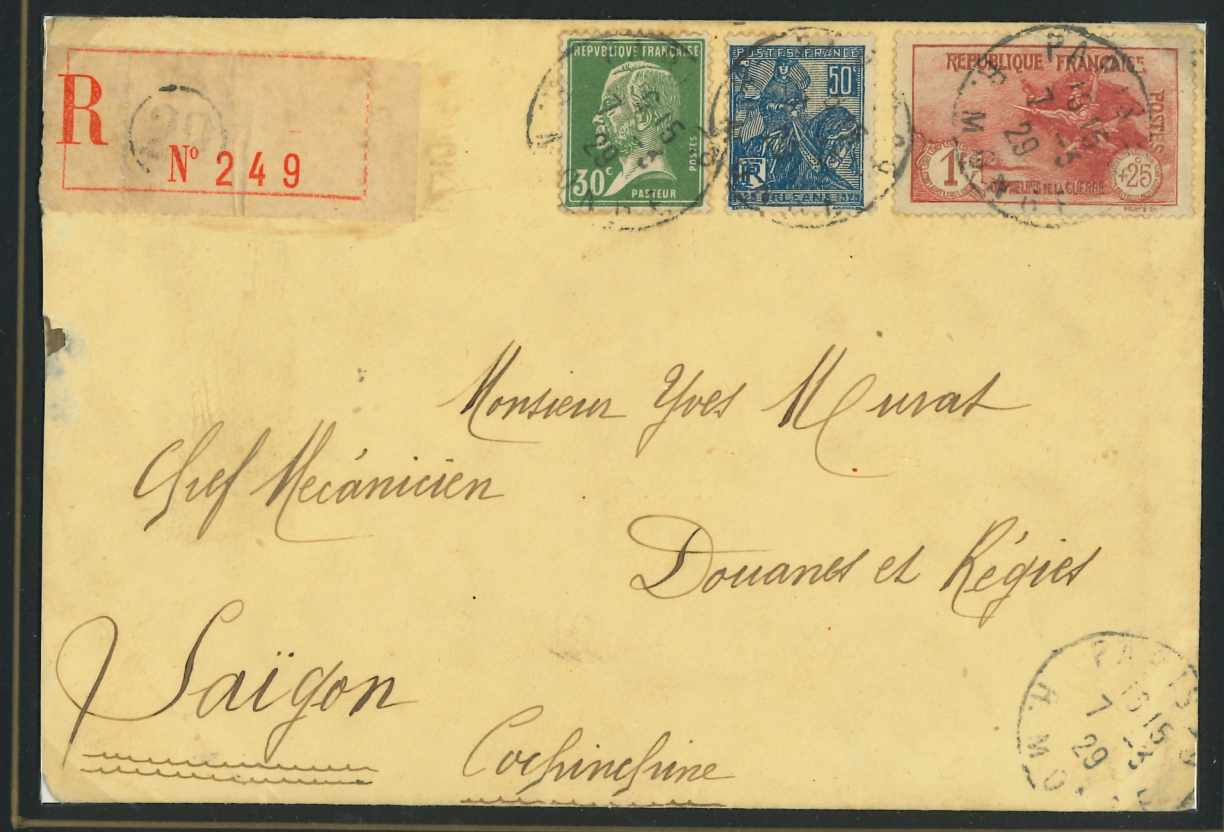 R
20
Nº 249
REPVBLIQVE FRANÇAISE
30c
POSTES
PASTEUR
POSTES FRANCE
50c
RF
ORLEANS
REPUBLIQUE FRANÇAISE
POSTES
1F
+25c
ORPHELINS DE LA GUERRE
PARIS
15 15
7 -3
29
Monsieur Yves Murat
Chef Mécanicien
Douanes et Régies
Saïgon
Cochinchine
PARIS
15 15
7 -3
29